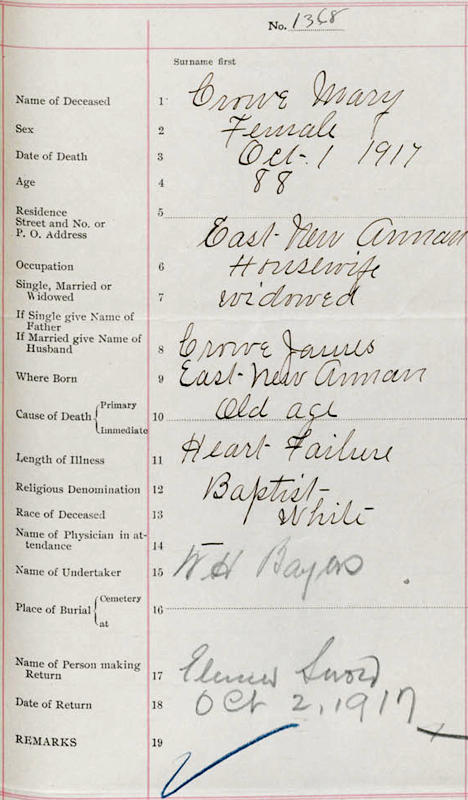 No. 1368
Surname first
Name of Deceased 1 Crowe Mary
Sex 2 Female
Date of Death 3 Oct. 1 1917
Age 4 88
Residence
Street and No. or 5
P. O. Address East New Annan
Occupation 6 Housewife
Single, Married or
Widowed 7 widowed
If Single give Name of
Father
If Married give Name of
Husband 8 Crowe James
Where Born 9 East New Annan
Cause of Death { Primary 10 Old age
Immediate
Length of Illness 11 Heart Failure
Religious Denomination 12 Baptist
Race of Deceased 13 White
Name of Physician in at-
tendance 14
Name of Undertaker 15 W H Byers
Place of Burial { Cemetery 16
at
Name of Person making
Return 17 Elmer
Date of Return 18 Oct 2, 1917
REMARKS 19